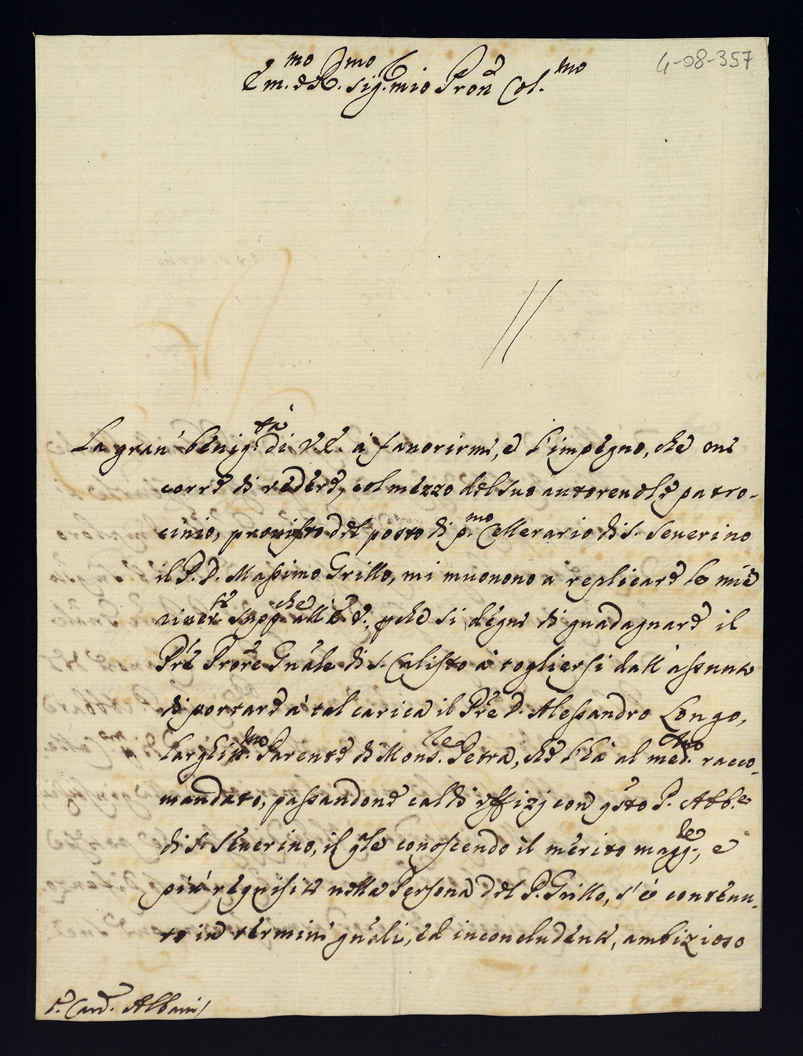 4-08-357
Em.mo e R.mo Sig. mio Pron Col.mo
La gran' benig.tà di V.E. à favorirmi, e l'impegno, che oni
corre di vedere, col mezzo del suo autorevole patro-
cinio, provisto del posto di p.mo Cellerario di S. Severino
il P. D. Massimo Grillo, mi muovono a replicare le mie
river.ti supp.che all'E.V., pche si degni di guadagnare il
Pre Prore Gnale di S. Calisto à togliersi dall'assunto
di portare à tal carica il Pre D. Alessandro Longo,
larghiss.mo Parente di Mons.re Petra, che l'hà al med.mo racco-
mandato, passandone caldi uffizj con qsto P. Abb.e
di S. Severino, il qle conoscendo il merito magg.re, e
più requisiti nella Persona del P. Grillo, s'è contenu-
to in termini gnali, ed inconcludenti, ambizioso
S. Card. Albani